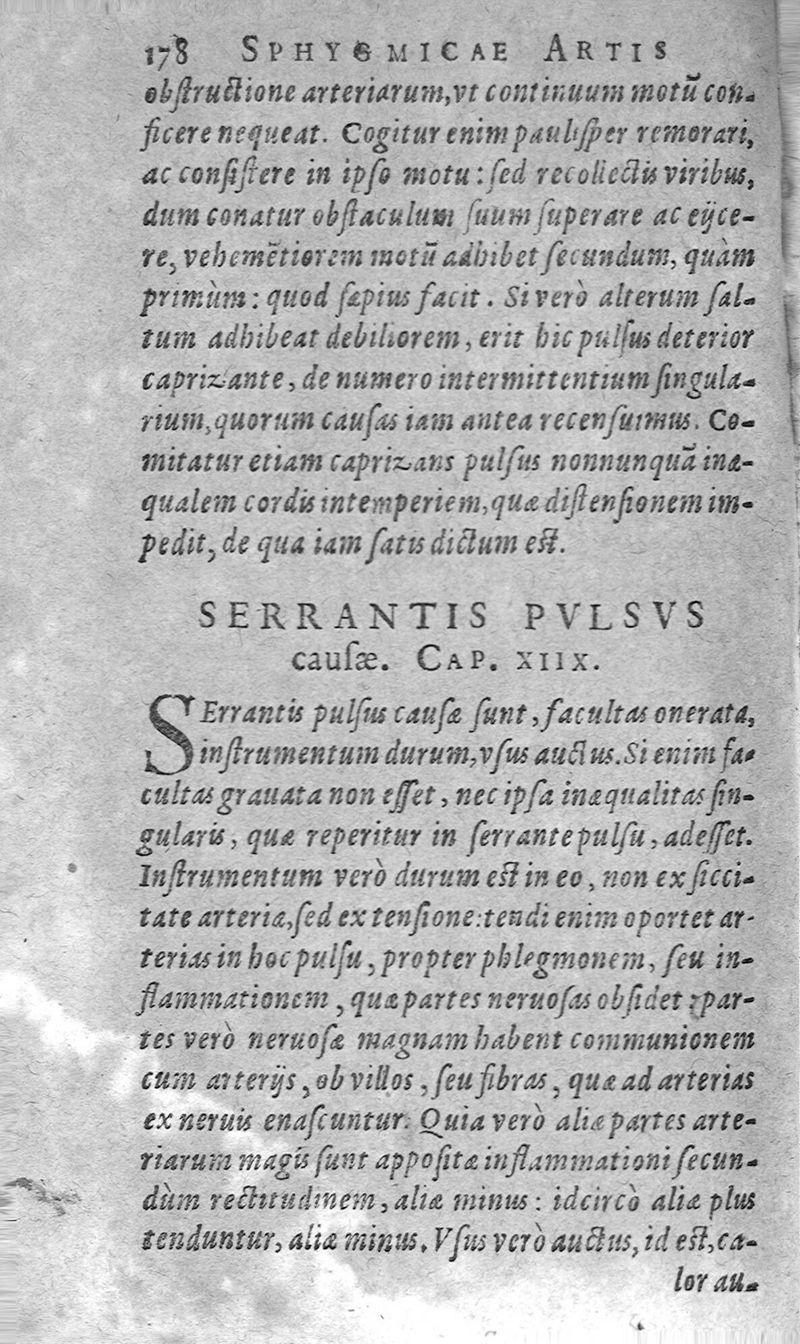 178 SPHYGMICAE ARTIS
obſtructione arteriarum,vt continuum motū con-
ficere nequeat. Cogitur enim pauliſper remorari,
ac conſiſtere in ipſo motu : ſed recollectis viribus,
dum conatur obſtaculum ſuum ſuperare ac eijce-
re, vehemētiorem motū adhibet ſecundum, quàm
primùm : quod ſæpius facit. Si verò alterum ſal-
tum adhibeat debiliorem, erit hic pulſus deterior
caprizante, de numero intermittentium ſingula-
rium,quorum cauſas iam antea recenſuimus. Co-
mitatur etiam caprizans pulſus nonnunquā inæ-
qualem cordis intemperiem,quæ diſtenſionem im-
pedit, de qua iam ſatis dictum eſt.
SERRANTIS PVLSVS
cauſæ. CAP. XIIX.
SErrantis pulſus cauſæ ſunt, facultas onerata,
inſtrumentum durum,vſus auctus.Si enim fa-
cultas grauata non eſſet, nec ipſa inæqualitas ſin-
gularis, quæ reperitur in ſerrante pulſu, adeſſet.
Inſtrumentum verò durum eſt in eo, non ex ſicci-
tate arteriæ,ſed ex tenſione:tendi enim oportet ar-
terias in hoc pulſu, propter phlegmonem, ſeu in-
flammationem, quæ partes neruoſas obſidet : par-
tes verò neruoſæ magnam habent communionem
cum arterijs, ob villos, ſeu fibras, quæ ad arterias
ex neruis enaſcuntur. Quia verò aliæ partes arte-
riarum magis ſunt appoſitæ inflammationi ſecun-
dùm rectitudinem, aliæ minus : idcircò aliæ plus
tenduntur, aliæ minus. Vſus verò auctus, id eſt,ca-
lor au-